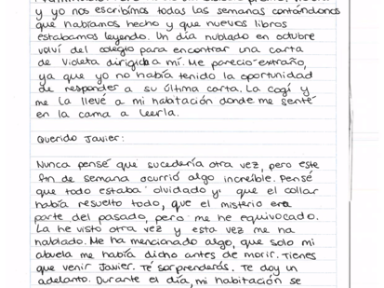 y yo nos escribimos todas las semanas contándonos
que habíamos hecho y que nuevos libros
estabamos leyendo. Un día nublado en octubre
volví del colegio para encontrar una carta
de Violeta dirigida a mí. Me pareció extraño,
ya que yo no había tenido la oportunidad
de responder a su última carta. La cogí y
me la llevé a mi habitación donde me senté
en la cama a leerla.
Querido Javier:
Nunca pensé que sucedería otra vez, pero este
fin de semana ocurrió algo increíble. Pensé
que todo estaba olvidado y que el collar
había resuelto todo, que el misterio era
parte del pasado, pero me he equivocado.
La he visto otra vez y esta vez me ha
hablado. Me ha mencionado algo, que solo mi
abuela me había dicho antes de morir. Tienes
que venir Javier. Te sorprenderás. Te doy un
adelanto. Durante el día, mi habitación se